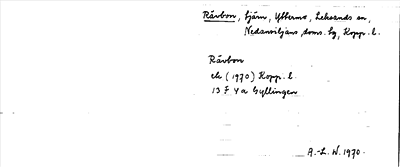 Rävbon, tjärn, Yttermo, Leksands sn,
Nedansiljans doms. hg, Kopp. l.
Rävbon
ek (1970) Kopp. l.
13 F 4 a Gyllingen
A.-L. W. 1970.